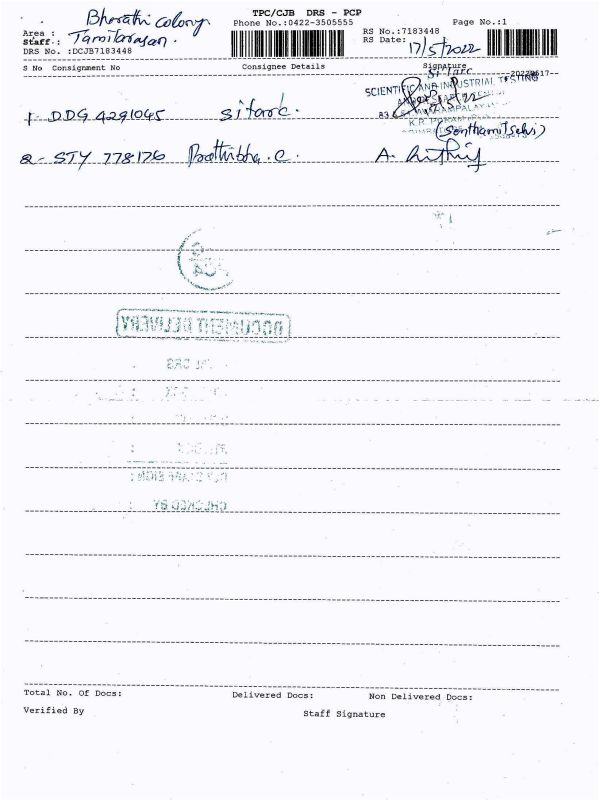 TPC/CJB DRS - PCP
Bharathi colony
Phone No.:0422-3505555
Page No.:1
Area :
Staff.: Tamilarasan.
DRS No. :DCJB7183448
RS No.:7183448
RS Date: 17/5/2022
S No Consignment No Consignee Details Signature
SCIENTIFIC AND INDUSTRIAL TESTING
1- DDG 4291045 Sitarc.
(Senthamil Selvi)
2- STY 778176
DOCUMENT DELIVERY
CHECKED BY
Total No. Of Docs: Delivered Docs: Non Delivered Docs:
Verified By Staff Signature